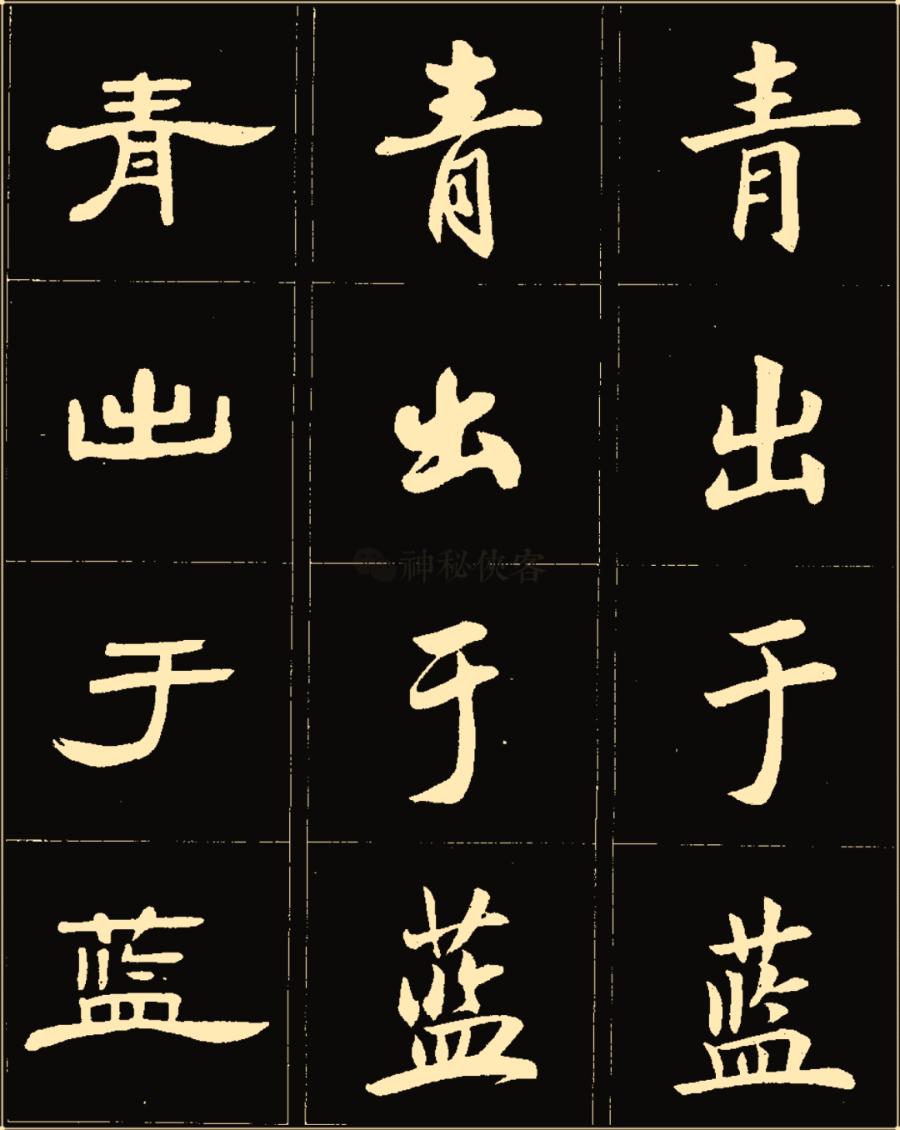 青出于蓝
青出于蓝
青出于蓝
神秘侠客